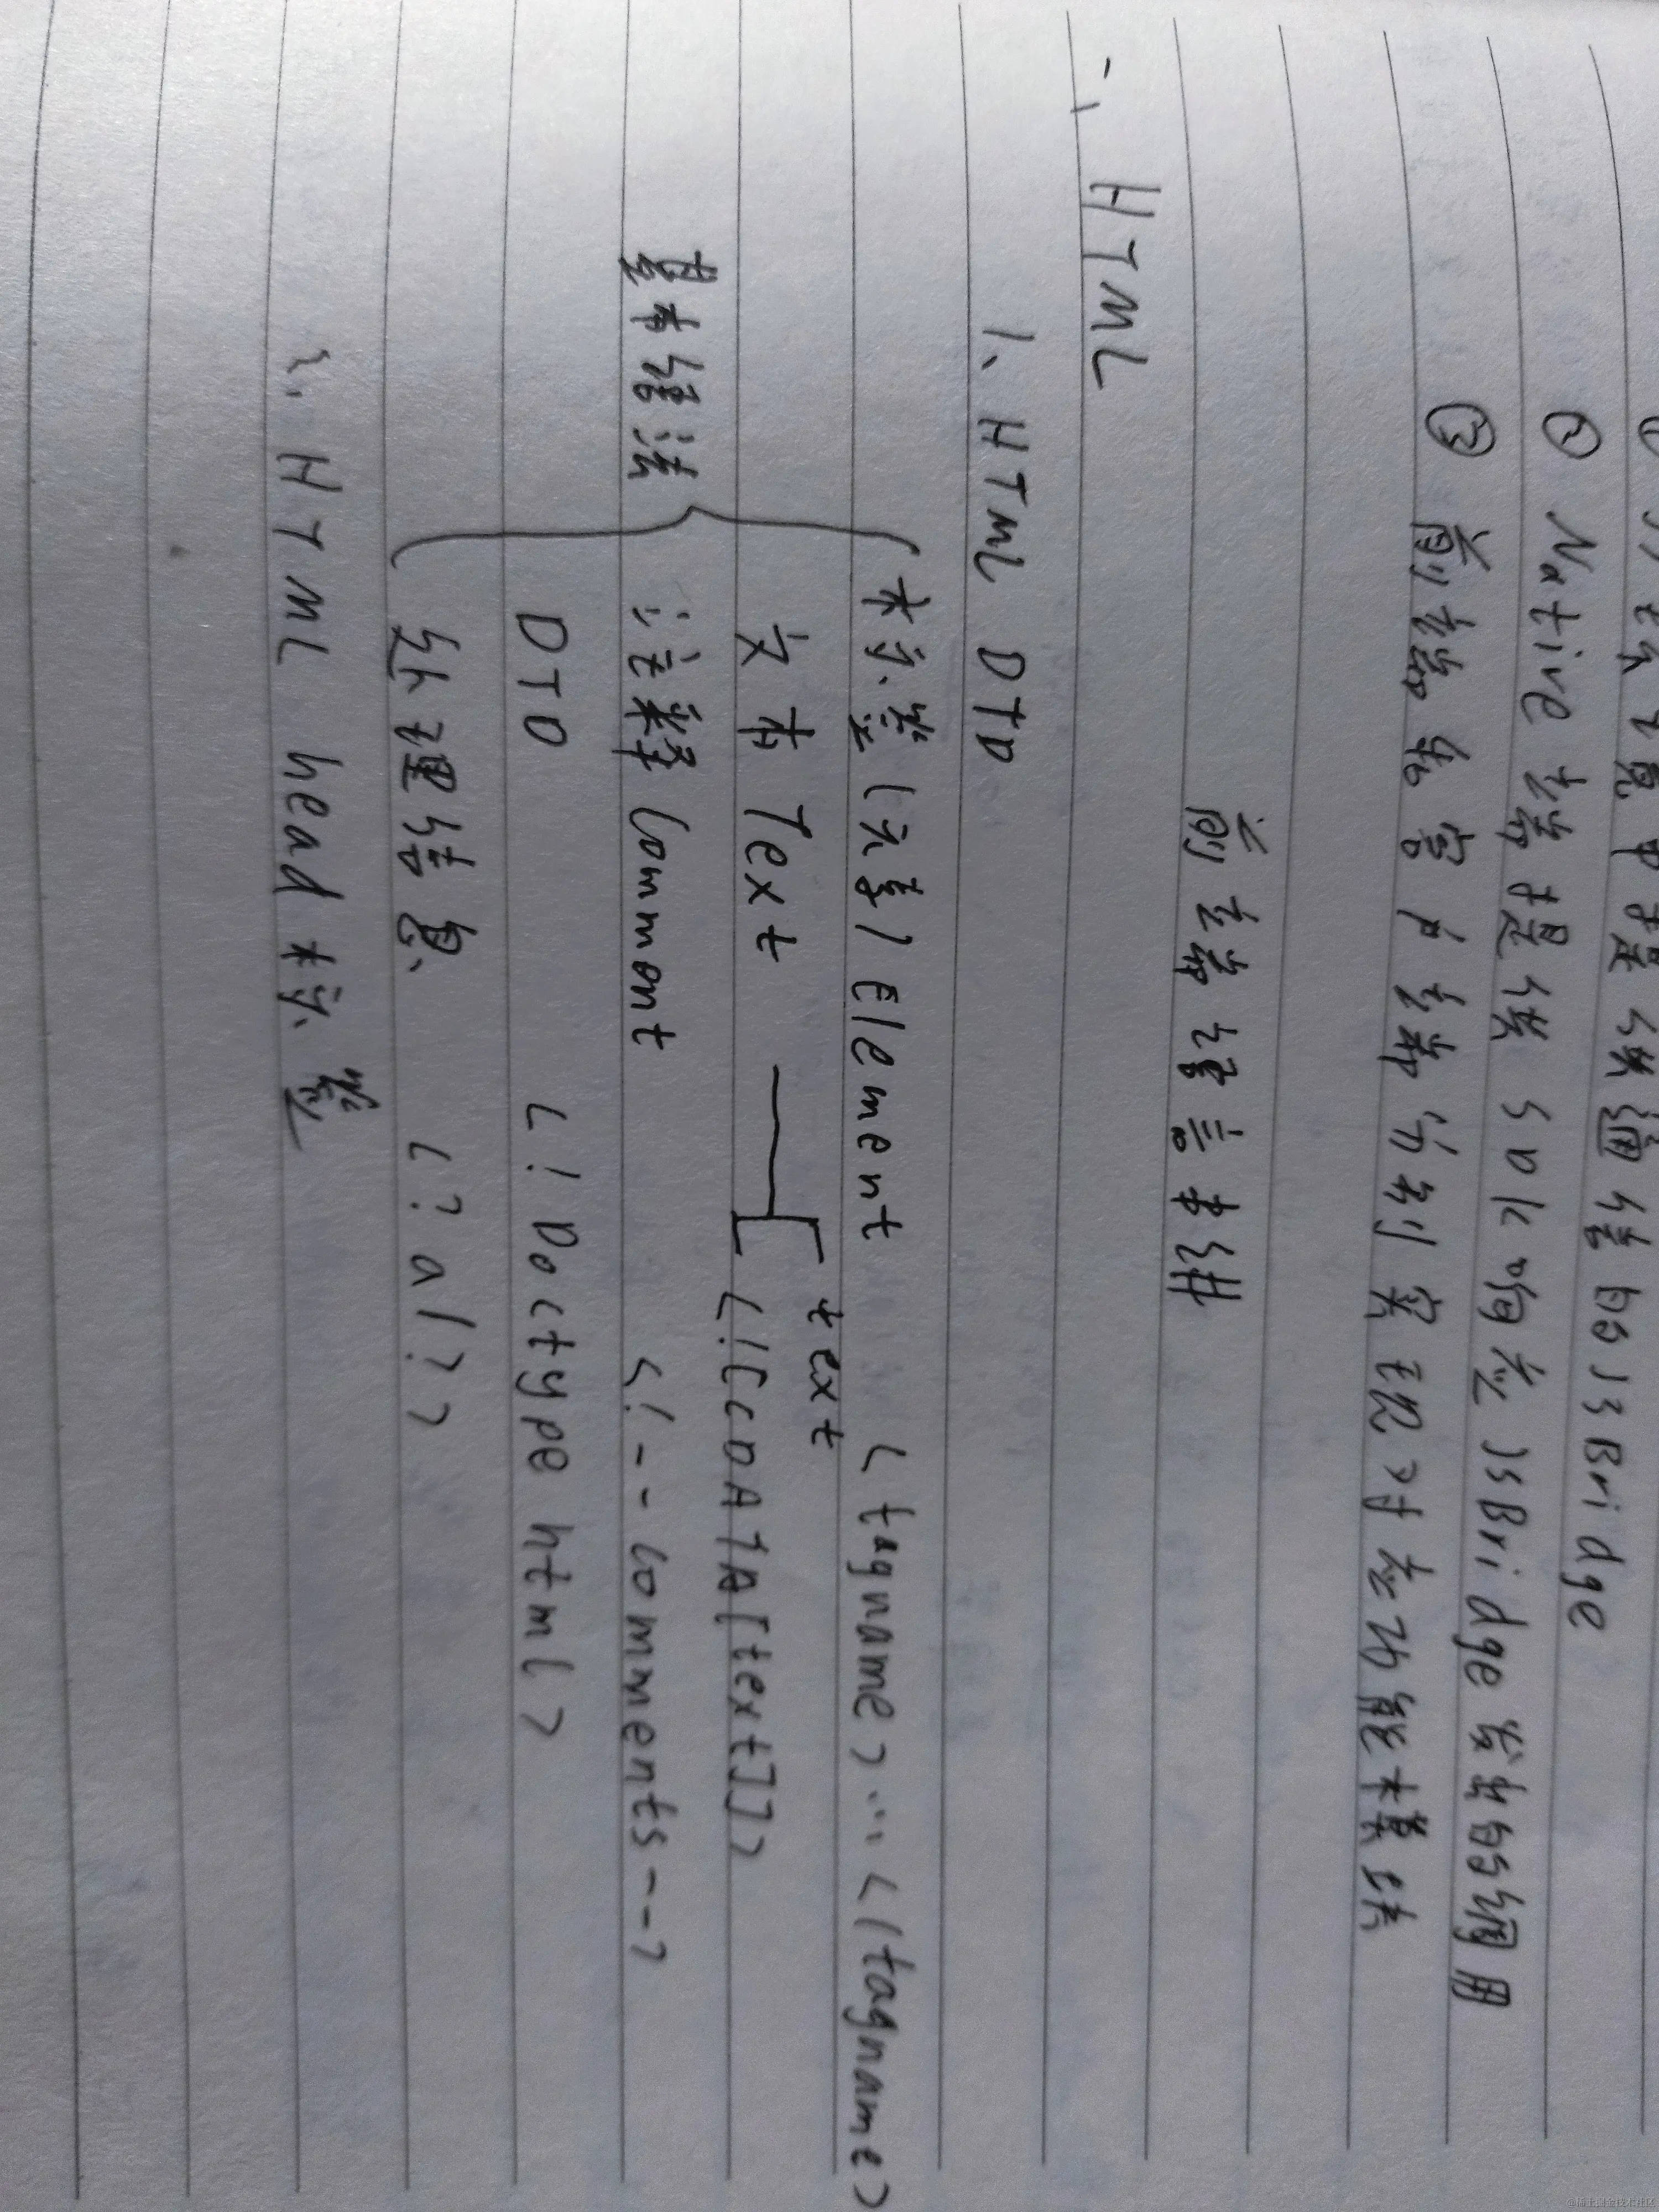 在环境中提供通信的JSBridge
② Native 端提供 SDK 响应 JSBridge 发出的调用
③ 前端和客户端分别实现对应功能模块
前端语言串讲
一、HTML
1、HTML DTD
基本语法
标签(元素) Element <tagname>...</tagname>
文本 Text text
<![CDATA[text]]>
注释 Comment <!--comments-->
DTD <!Doctype html>
处理信息 <?a1?>
2、HTML head 标签
@稀土掘金技术社区